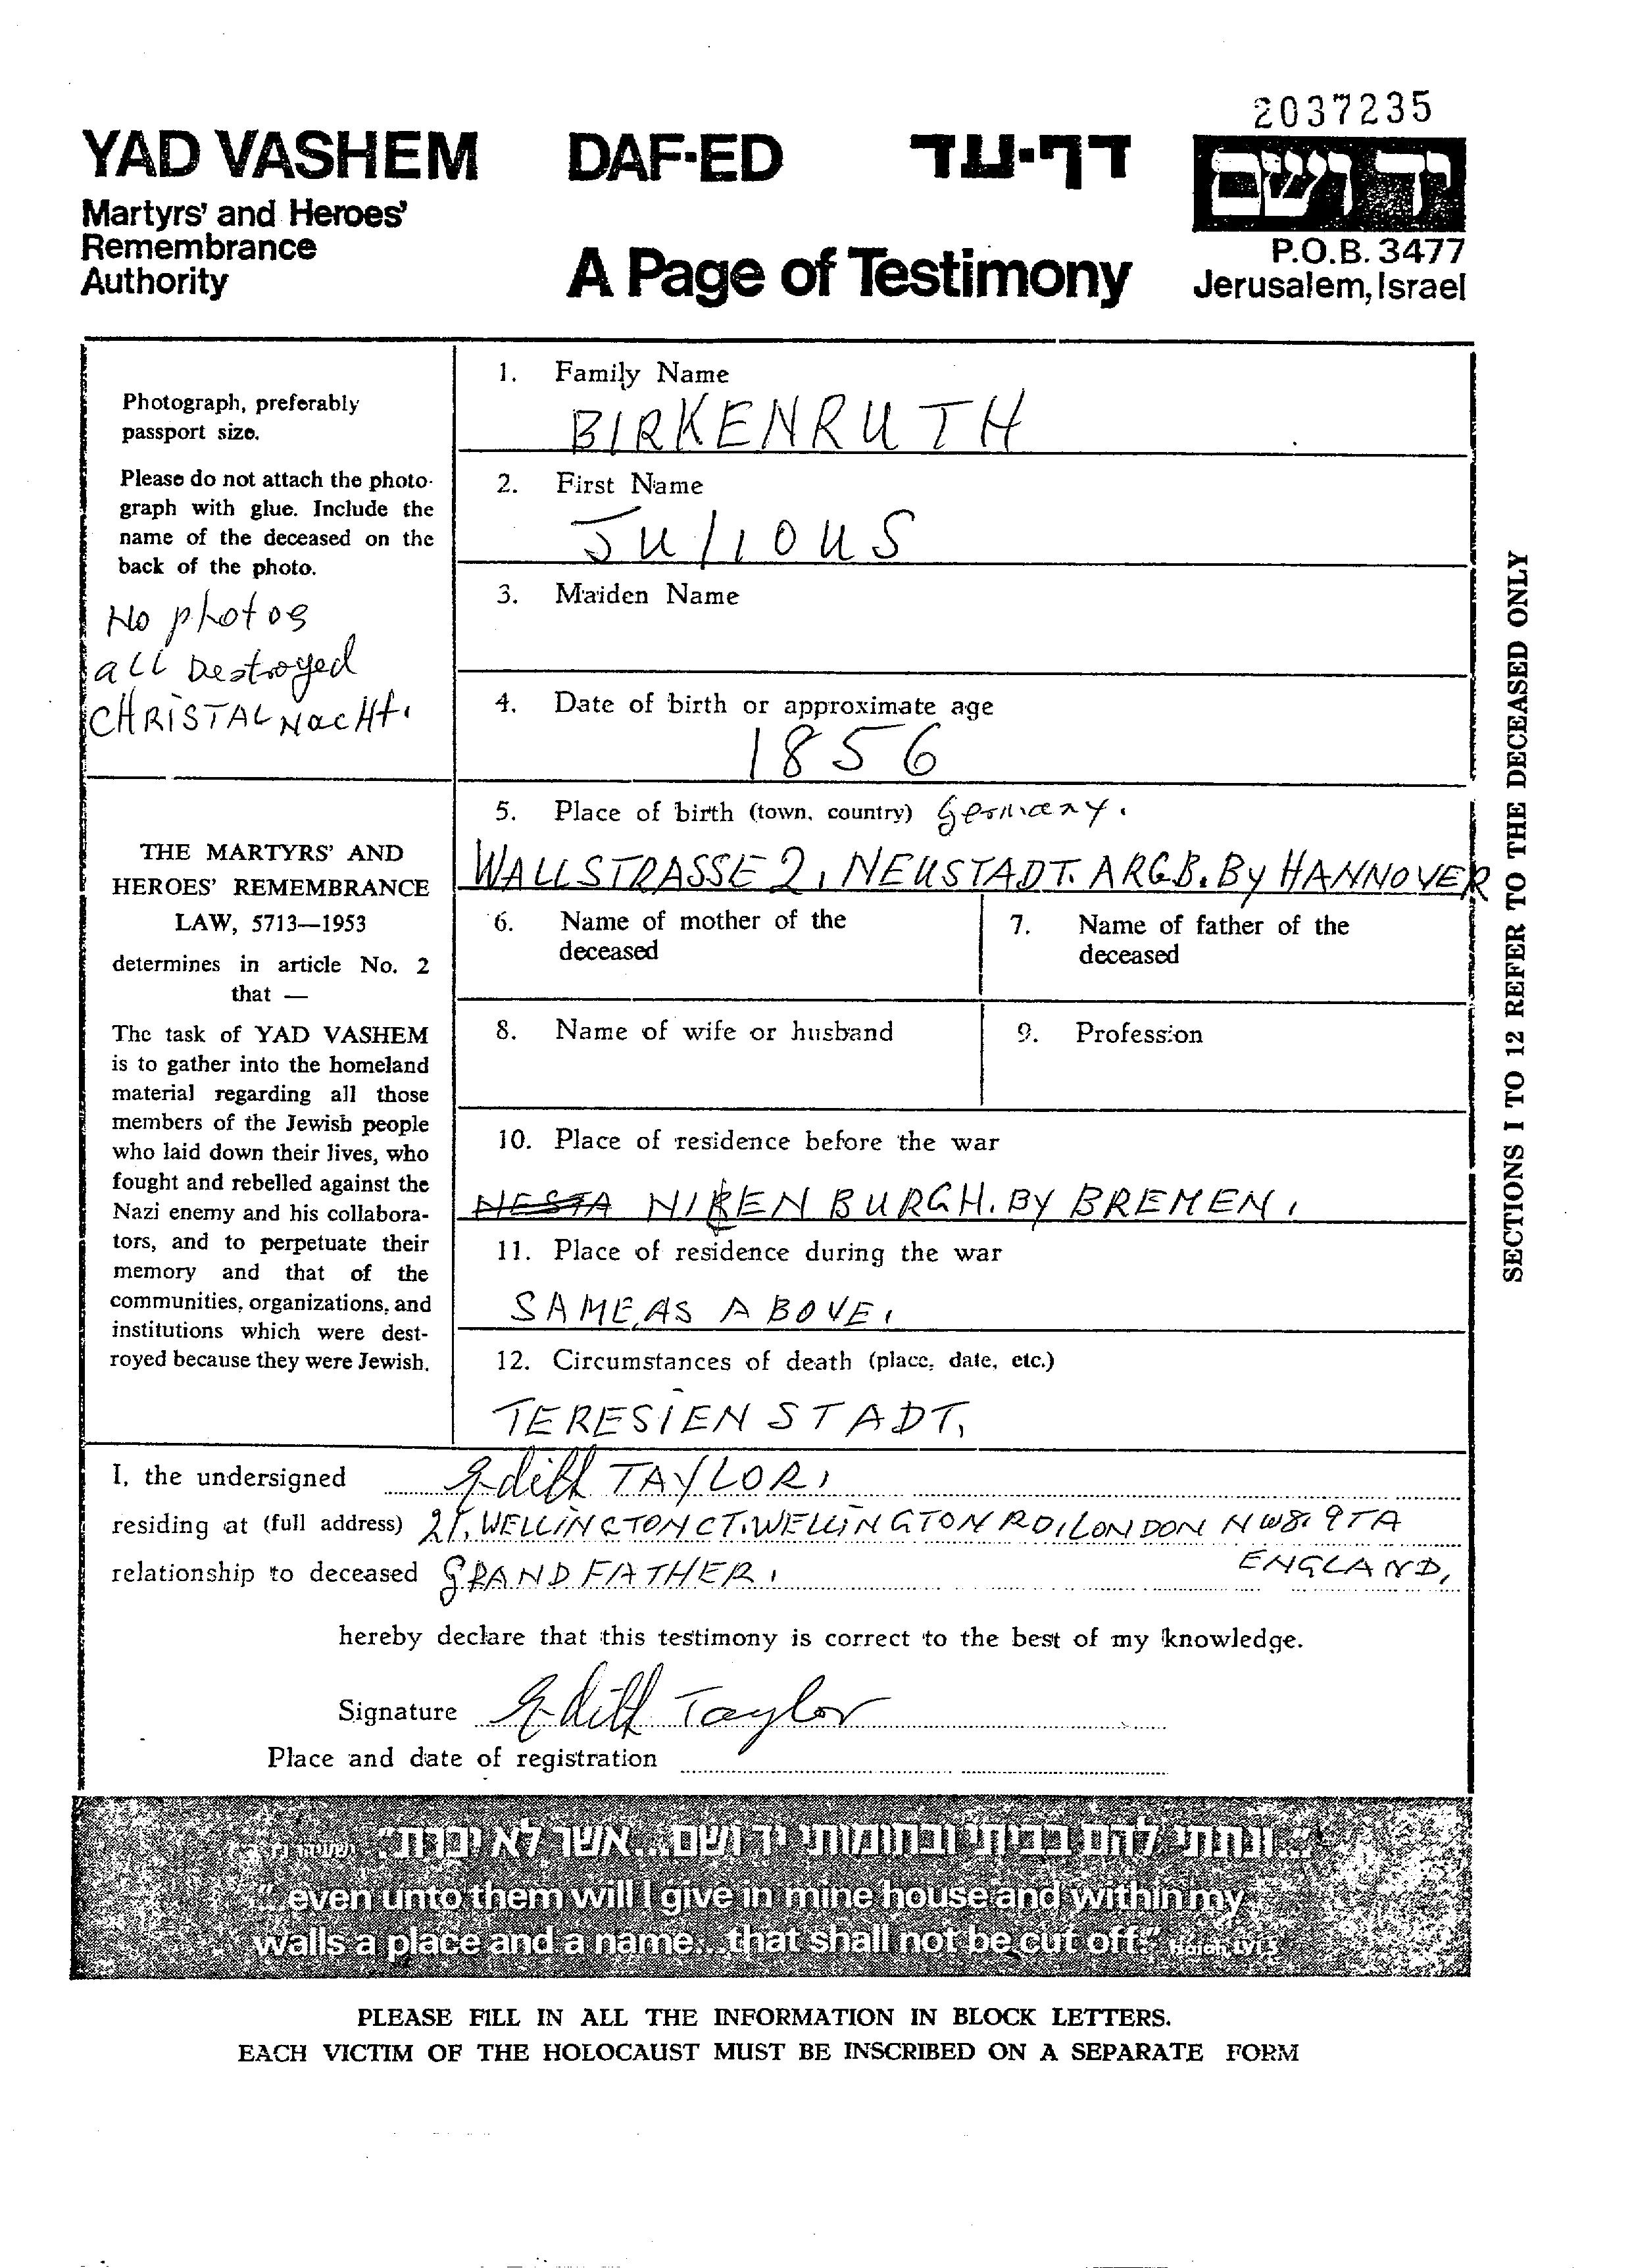 2037235
YAD VASHEM DAF-ED דף-עד יד ושם
Martyrs' and Heroes'
Remembrance
Authority
A Page of Testimony
P.O.B. 3477
Jerusalem, Israel
Photograph, preferably
passport size.
Please do not attach the photo-
graph with glue. Include the
name of the deceased on the
back of the photo.
No photos
all Destroyed
CHRISTALNacHt.
THE MARTYRS' AND
HEROES' REMEMBRANCE
LAW, 5713—1953
determines in article No. 2
that —
The task of YAD VASHEM
is to gather into the homeland
material regarding all those
members of the Jewish people
who laid down their lives, who
fought and rebelled against the
Nazi enemy and his collabora-
tors, and to perpetuate their
memory and that of the
communities, organizations, and
institutions which were dest-
royed because they were Jewish.
1. Family Name
BIRKENRUTH
2. First Name
JUlIOUS
3. Maiden Name
4. Date of birth or approximate age
1856
5. Place of birth (town, country) Germany.
WALLSTRASSE 2, NEUSTADT. ARGB. By HANNOVER
6. Name of mother of the
deceased
7. Name of father of the
deceased
8. Name of wife or husband
9. Profession
10. Place of residence before the war
BURGH. BY BREMEN.
11. Place of residence during the war
SAME AS ABOVE.
12. Circumstances of death (place, date, etc.)
TERESIENSTADT.
I, the undersigned Edith TAYLOR.
residing at (full address) 21, WELLINGTON CT. WELLINGTON RD, LONDON NW8. 9TA
ENGLAND,
relationship to deceased GRANDFATHER.
hereby declare that this testimony is correct to the best of my knowledge.
Signature Edith Taylor
Place and date of registration
"...ונתתי להם בביתי ובחומותי יד ושם...אשר לא יכרת."
"...even unto them will I give in mine house and within my
walls a place and a name...that shall not be cut off." Isaiah LVI 5
PLEASE FILL IN ALL THE INFORMATION IN BLOCK LETTERS.
EACH VICTIM OF THE HOLOCAUST MUST BE INSCRIBED ON A SEPARATE FORM
SECTIONS 1 TO 12 REFER TO THE DECEASED ONLY